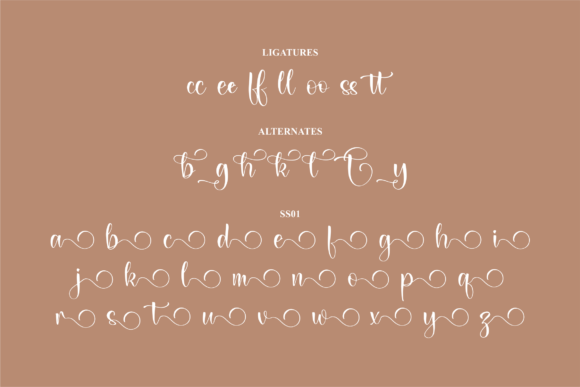 LIGATURES
cc ee ff ll oo ss tt
ALTERNATES
b g h k t T y
SS01
a b c d e f g h i
j k l m n o p q
r s t u v w x y z